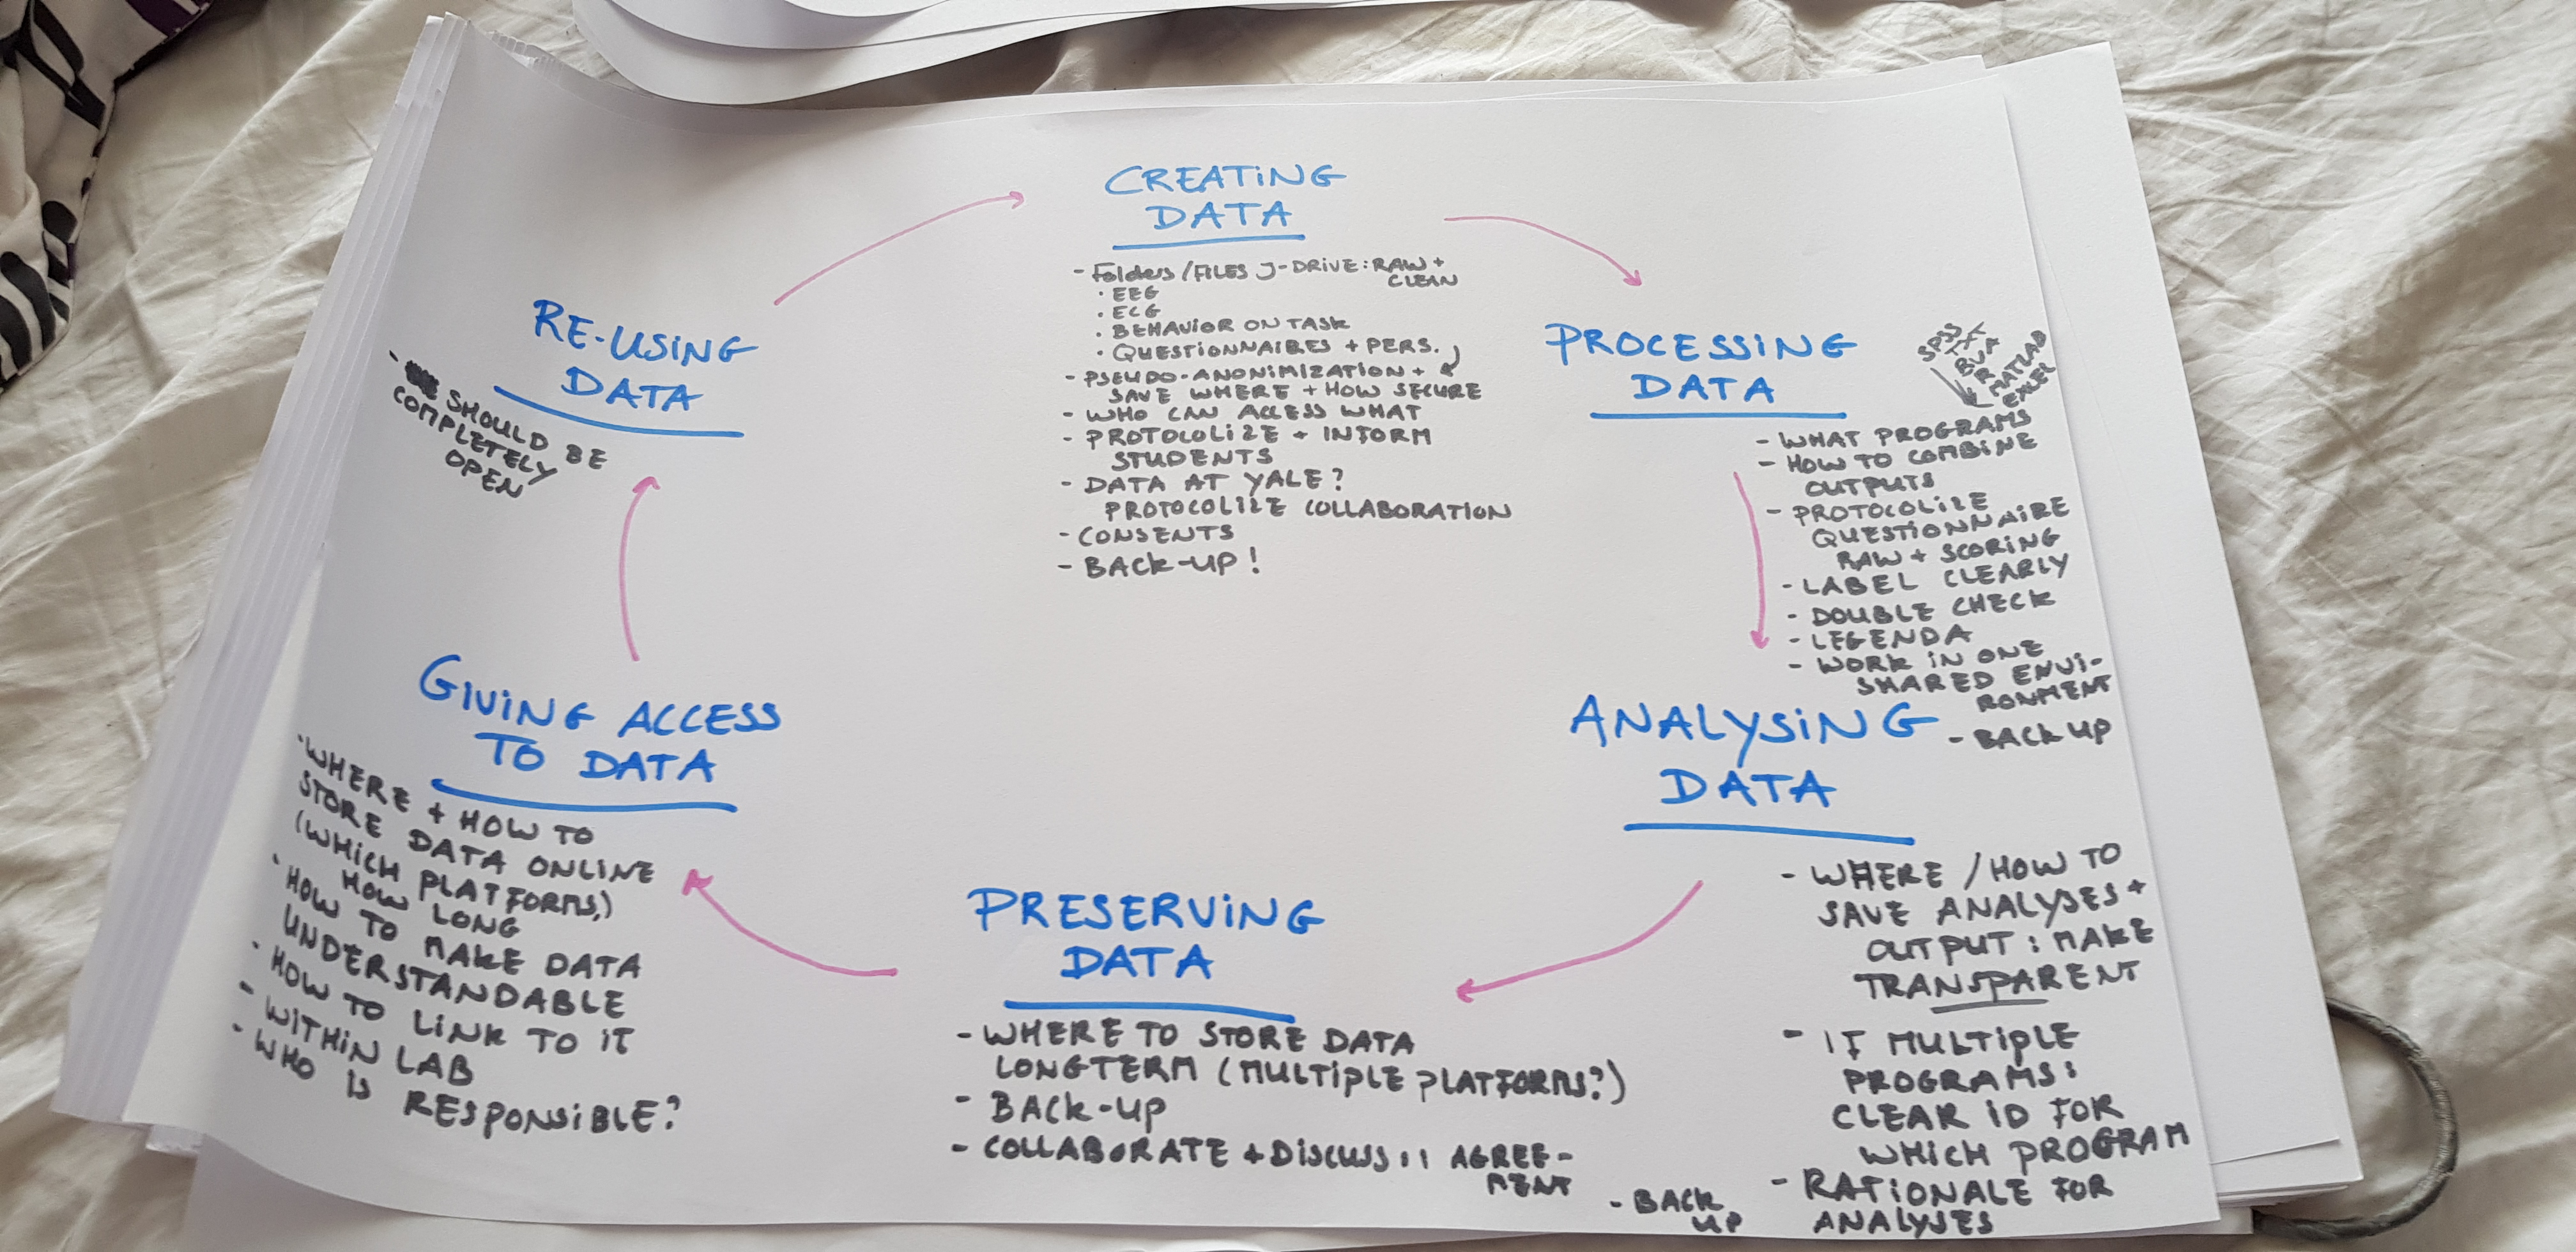 CREATING
DATA
- Folders/FILES J-DRIVE: RAW +
CLEAN
· EEG
· ECG
· BEHAVIOR ON TASK
· QUESTIONNAIRES + PERS.
- PSEUDO-ANONIMIZATION +
SAVE WHERE + HOW SECURE
- WHO CAN ACCESS WHAT
- PROTOCOLIZE + INFORM
STUDENTS
- DATA AT YALE?
PROTOCOLIZE COLLABORATION
- CONSENTS
- BACK-UP!
PROCESSING
DATA
SPSS
BVA
R
MATLAB
EXCEL
- WHAT PROGRAMS
- HOW TO COMBINE
OUTPUTS
- PROTOCOLIZE
QUESTIONNAIRE
RAW + SCORING
- LABEL CLEARLY
- DOUBLE CHECK
- LEGENDA
- WORK IN ONE
SHARED ENVI-
RONMENT
- BACK UP
ANALYSING
DATA
- WHERE/HOW TO
SAVE ANALYSES +
OUTPUT: MAKE
TRANSPARENT
- IF MULTIPLE
PROGRAMS:
CLEAR ID FOR
WHICH PROGRAM
- RATIONALE FOR
ANALYSES
- BACK
UP
PRESERVING
DATA
- WHERE TO STORE DATA
LONGTERM (MULTIPLE PLATFORMS?)
- BACK-UP
- COLLABORATE + DISCUSS!! AGREE-
MENT
GIVING ACCESS
TO DATA
- WHERE + HOW TO
STORE DATA ONLINE
(WHICH PLATFORMS,)
HOW LONG
- HOW TO MAKE DATA
UNDERSTANDABLE
- HOW TO LINK TO IT
- WITHIN LAB
- WHO IS RESPONSIBLE?
RE-USING
DATA
- SHOULD BE
COMPLETELY
OPEN